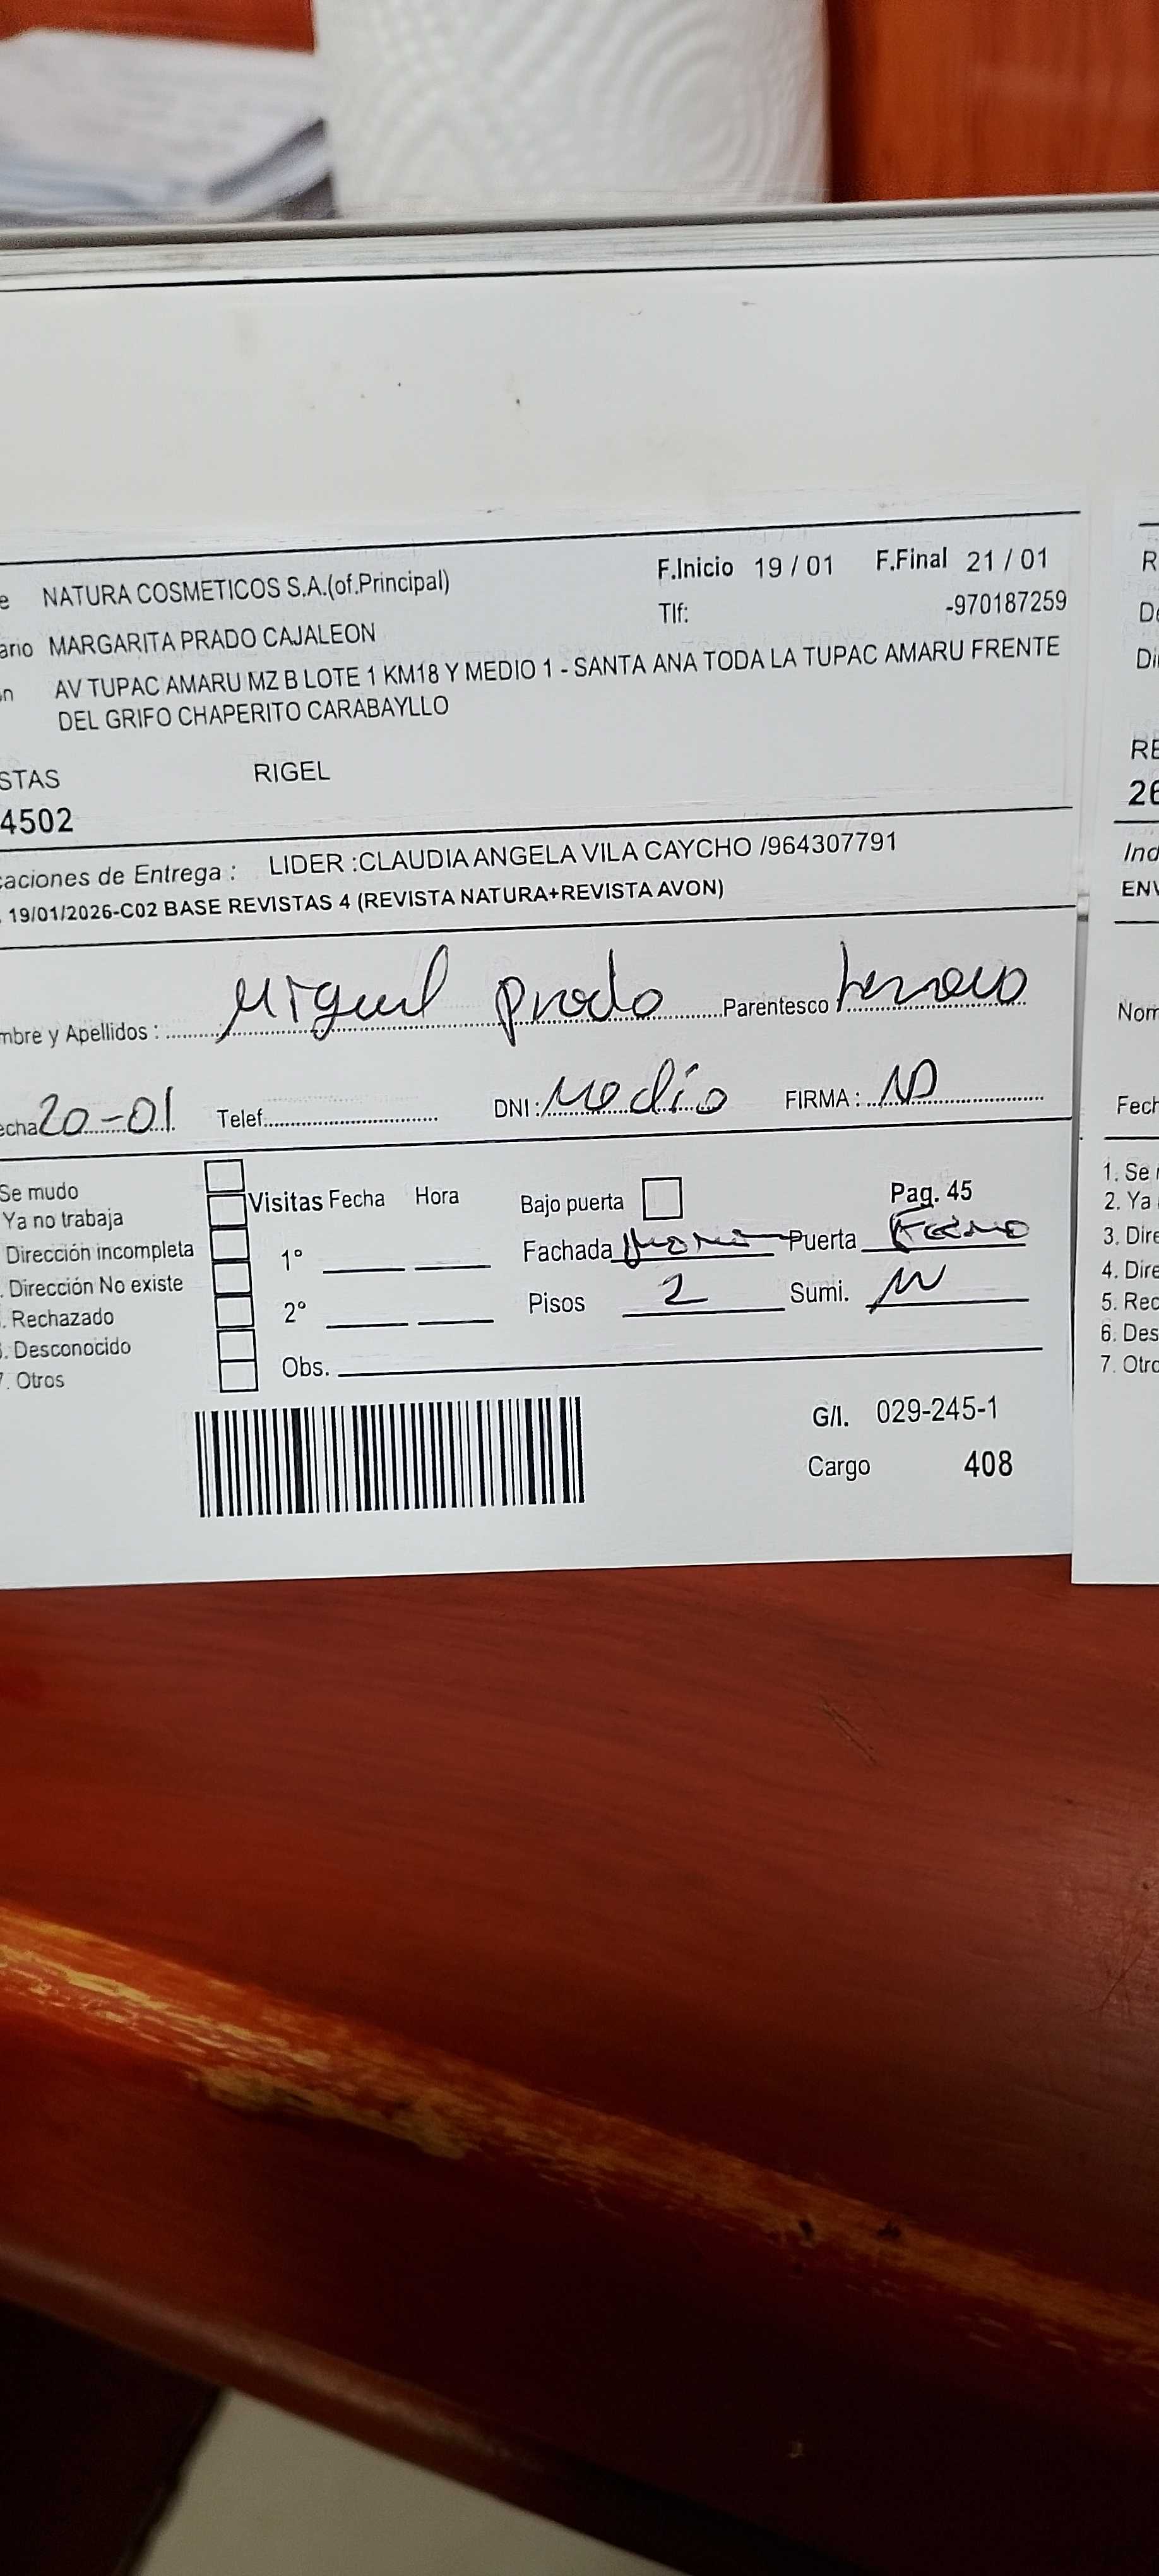 e NATURA COSMETICOS S.A.(of.Principal) F.Inicio 19 / 01 F.Final 21 / 01
ario MARGARITA PRADO CAJALEON Tlf: -970187259
n AV TUPAC AMARU MZ B LOTE 1 KM18 Y MEDIO 1 - SANTA ANA TODA LA TUPAC AMARU FRENTE
DEL GRIFO CHAPERITO CARABAYLLO
STAS RIGEL
4502
caciones de Entrega : LIDER :CLAUDIA ANGELA VILA CAYCHO /964307791
. 19/01/2026-C02 BASE REVISTAS 4 (REVISTA NATURA+REVISTA AVON)
mbre y Apellidos : Miguel Prado Parentesco
echa 20-01 Telef. DNI: Medio FIRMA :
Se mudo
Ya no trabaja
Dirección incompleta
. Dirección No existe
. Rechazado
6. Desconocido
7. Otros
Visitas Fecha Hora
1°
2°
Obs.
Bajo puerta Pag. 45
Fachada Puerta
Pisos 2 Sumi.
G/I. 029-245-1
Cargo 408
R
De
Di
RE
26
Ind
ENV
Nom
Fech
1. Se
2. Ya
3. Dire
4. Dire
5. Rec
6. Des
7. Otro